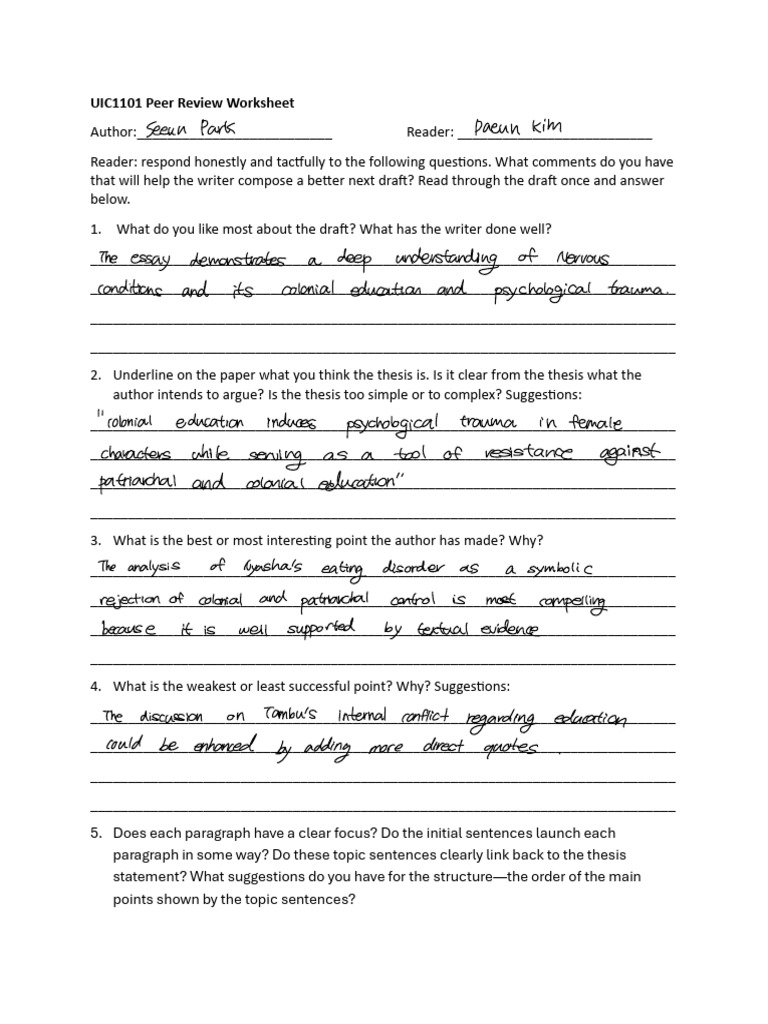 UIC1101 Peer Review Worksheet
Author: Seeun Park Reader: Daeun Kim
Reader: respond honestly and tactfully to the following questions. What comments do you have
that will help the writer compose a better next draft? Read through the draft once and answer
below.
1. What do you like most about the draft? What has the writer done well?
The essay demonstrates a deep understanding of Nervous
conditions and its colonial education and psychological trauma.
2. Underline on the paper what you think the thesis is. Is it clear from the thesis what the
author intends to argue? Is the thesis too simple or to complex? Suggestions:
"colonial education induces psychological trauma in female
characters while serving as a tool of resistance against
patriarchal and colonial education"
3. What is the best or most interesting point the author has made? Why?
The analysis of Nyasha's eating disorder as a symbolic
rejection of colonial and patriarchal control is most compelling
because it is well supported by textual evidence
4. What is the weakest or least successful point? Why? Suggestions:
The discussion on Tambu's internal conflict regarding education
could be enhanced by adding more direct quotes.
5. Does each paragraph have a clear focus? Do the initial sentences launch each
paragraph in some way? Do these topic sentences clearly link back to the thesis
statement? What suggestions do you have for the structure—the order of the main
points shown by the topic sentences?